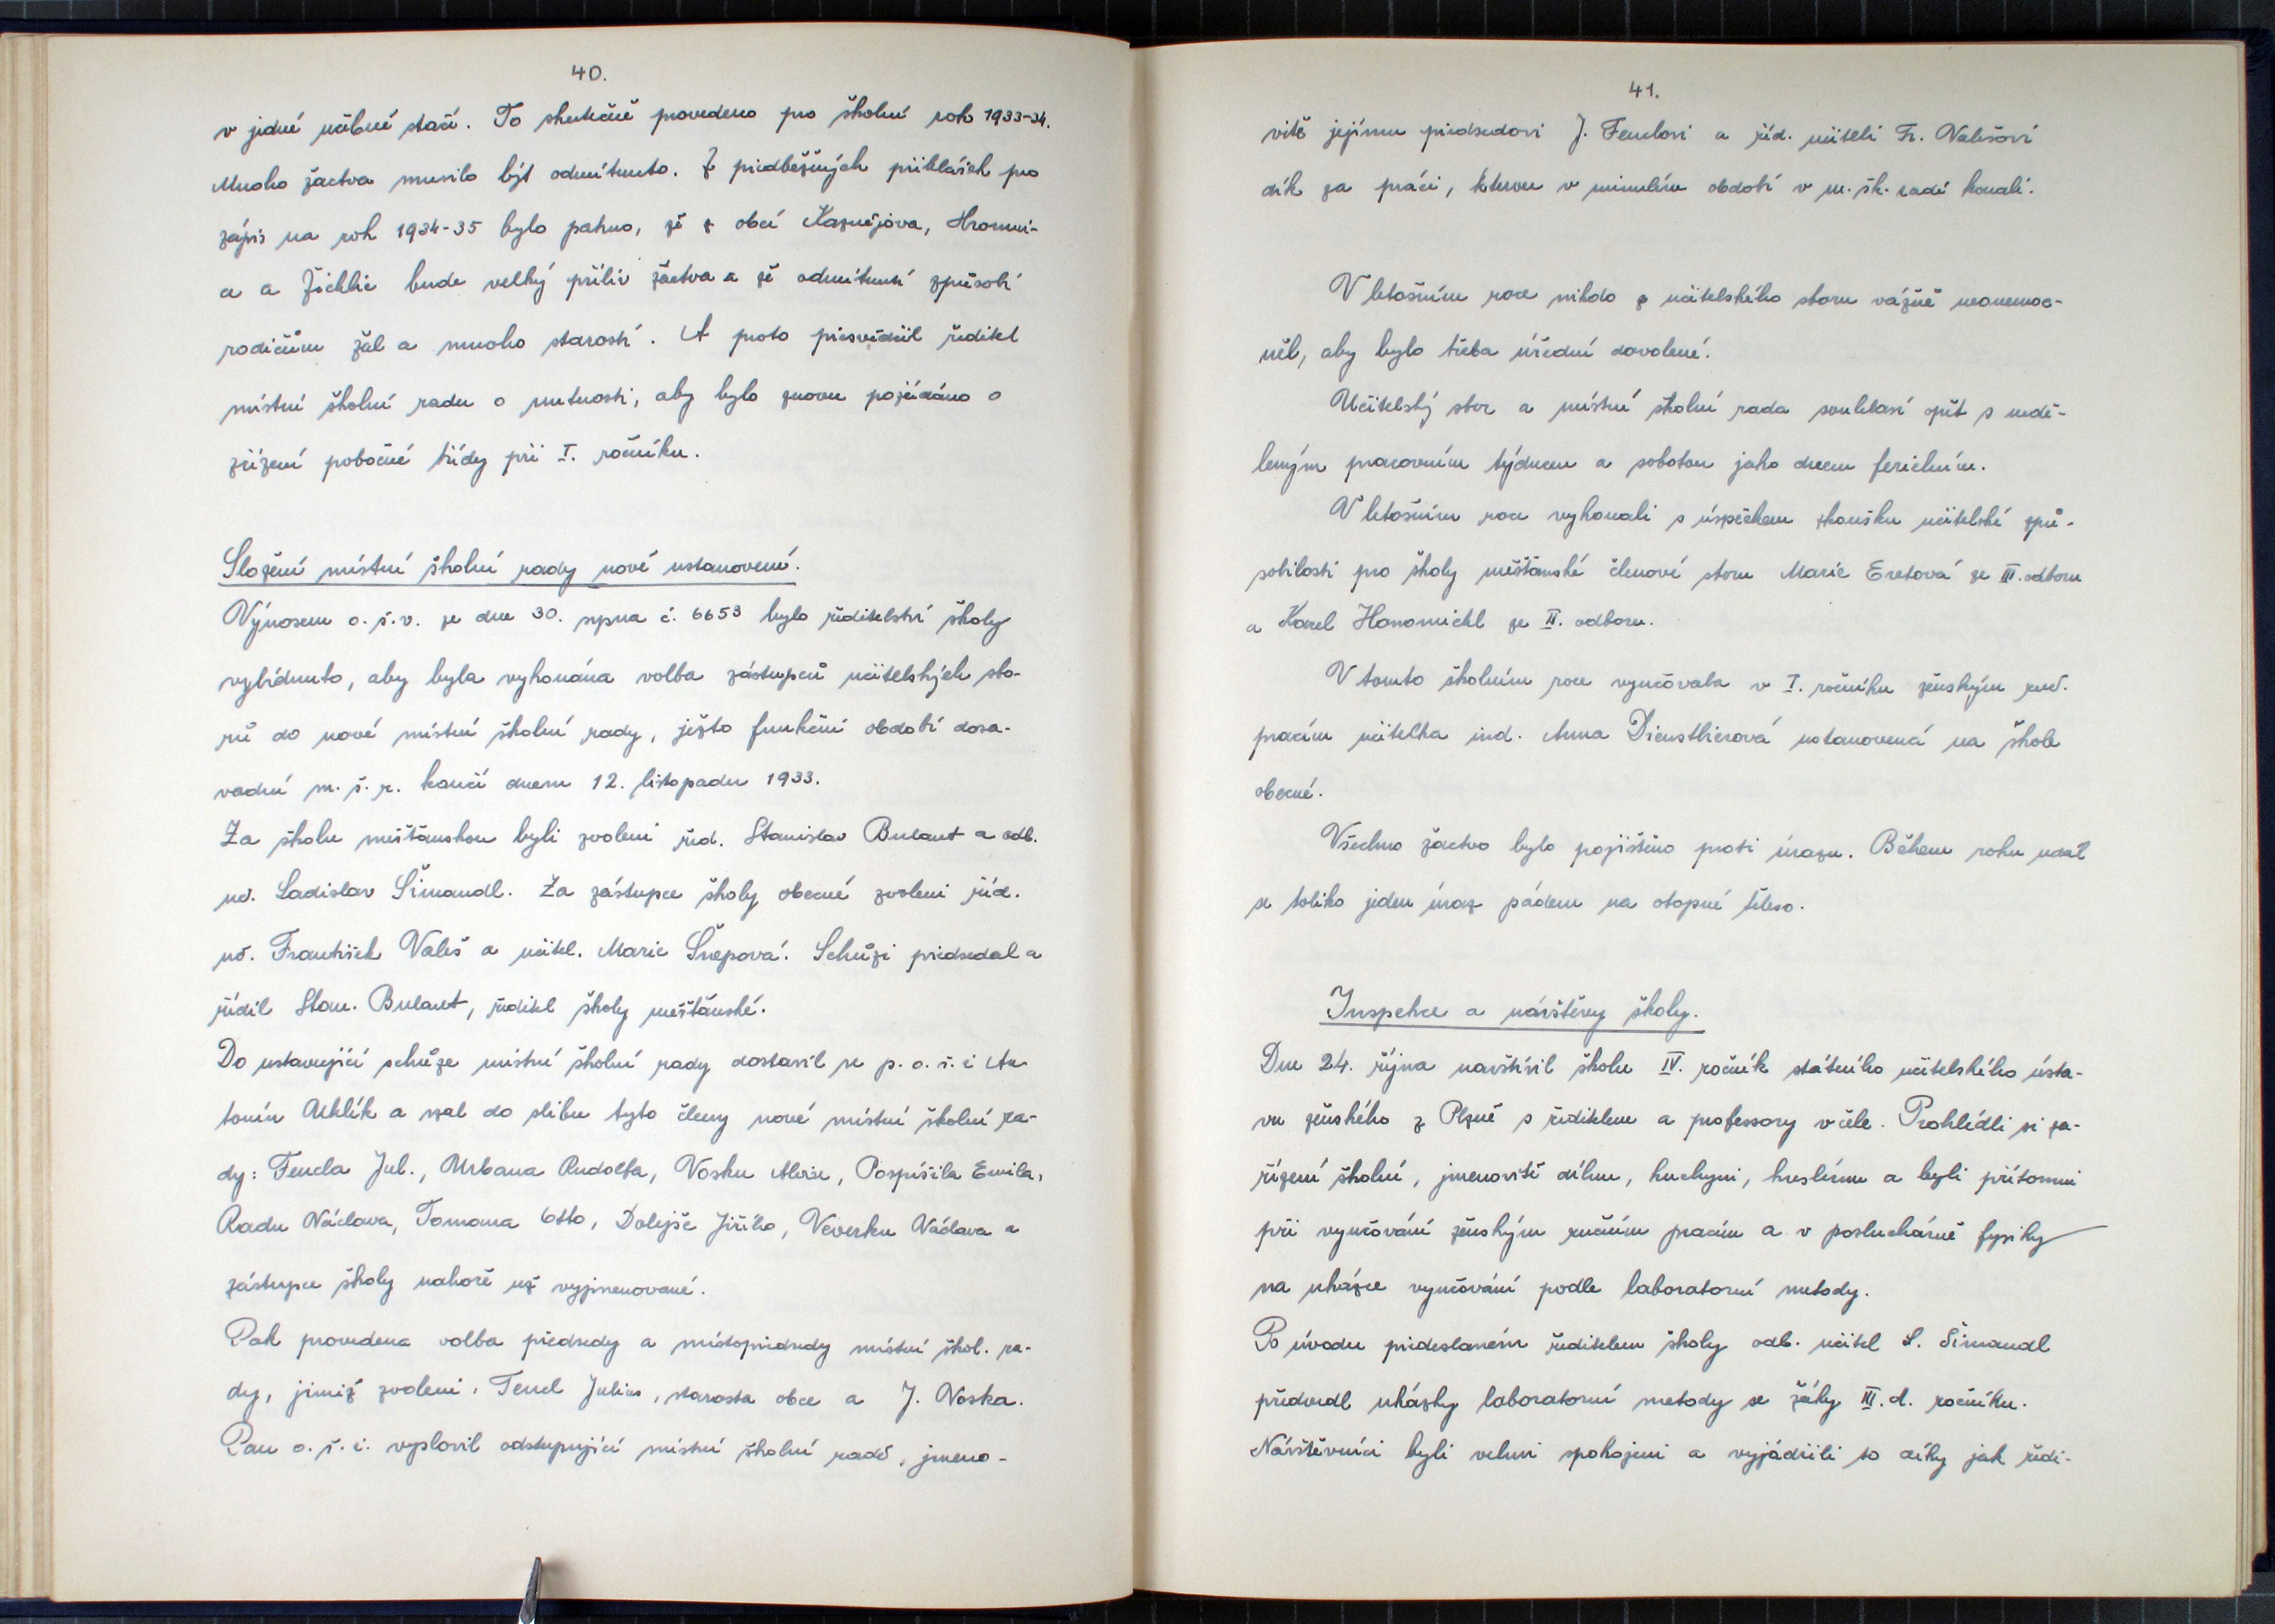 40.
v jedné učebné stačí. To skutečně provedeno pro školní rok 1933-34.
Mnoho žactva musilo být odmítnuto. Z předběžných přihlášek pro
zápis na rok 1934-35 bylo patrno, že z obcí Kaznějova, Hromni-
c a Žichlic bude velký příliv žactva a že odmítnutí způsobí
rodičům žal a mnoho starostí. A proto přesvědčil ředitel
místní školní radu o nutnosti, aby bylo znovu požádáno o
zřízení pobočné třídy při I. ročníku.
Složení místní školní rady nově ustanovené.
Výnosem o.š.v. ze dne 30. srpna č. 6653 bylo ředitelství školy
vybídnuto, aby byla vykonána volba zástupců učitelských sbo-
rů do nové místní školní rady, ježto funkční období dosa-
vadní m.š.r. končí dnem 12. listopadu 1933.
Za školu měšťanskou byli zvoleni řed. Stanislav Bulant a odb.
uč. Ladislav Šimandl. Za zástupce školy obecné zvoleni říd.
uč. František Valeš a učitel. Marie Šnepová. Schůzi předsedal a
řídil Stan. Bulant, ředitel školy měšťanské.
Do ustavující schůze místní školní rady dostavil se p. o.š.i An-
tonín Uhlík a vzal do slibu tyto členy nové místní školní ra-
dy: Fencla Jul., Urbana Rudolfa, Vosku Aloise, Pospíšila Emila,
Radu Václava, Tomana Otto, Dolejše Jiřího, Veverku Václava a
zástupce školy nahoře už vyjmenované.
Pak provedena volba předsedy a místopředsedy místní škol. ra-
dy, jimiž zvoleni: Fencl Julius, starosta obce a J. Voska.
Pan o.š.i. vyslovil odstupující místní školní radě, jmeno-
41.
vitě jejímu předsedovi J. Fenclovi a říd. učiteli Fr. Valešovi
dík za práci, kterou v minulém období v m.šk.radě konali.
V letošním roce nikdo z učitelského sboru vážně neonemoc-
něl, aby bylo třeba úřední dovolené.
Učitelský sbor a místní školní rada souhlasí opět s nedě-
leným pracovním týdnem a sobotou jako dnem feriálním.
V letošním roce vykonali s úspěchem zkoušku učitelské způ-
sobilosti pro školy měšťanské členové sboru Marie Eretová ze III. odboru
a Karel Hanomichl ze II. odboru.
V tomto školním roce vyučovala v I. ročníku ženským ruč.
pracím učitelka ind. Anna Dienstbierová ustanovená na škole
obecné.
Všechno žactvo bylo pojištěno proti úrazu. Během roku udál
se toliko jeden úraz pádem na otopné těleso.
Inspekce a návštěvy školy.
Dne 24. října navštívil školu IV. ročník státního učitelského ústa-
vu ženského z Plzně s ředitelem a professory v čele. Prohlédli si za-
řízení školní, jmenovitě dílnu, kuchyni, kreslírnu a byli přítomni
při vyučování ženským ručním pracím a v posluchárně fysiky
na ukázce vyučování podle laboratorní metody.
Po úvodu předeslaném ředitelem školy odb. učitel L. Šimandl
předvedl ukázky laboratorní metody se žáky III.d. ročníku.
Návštěvníci byli velmi spokojeni a vyjádřili to díky jak ředi-